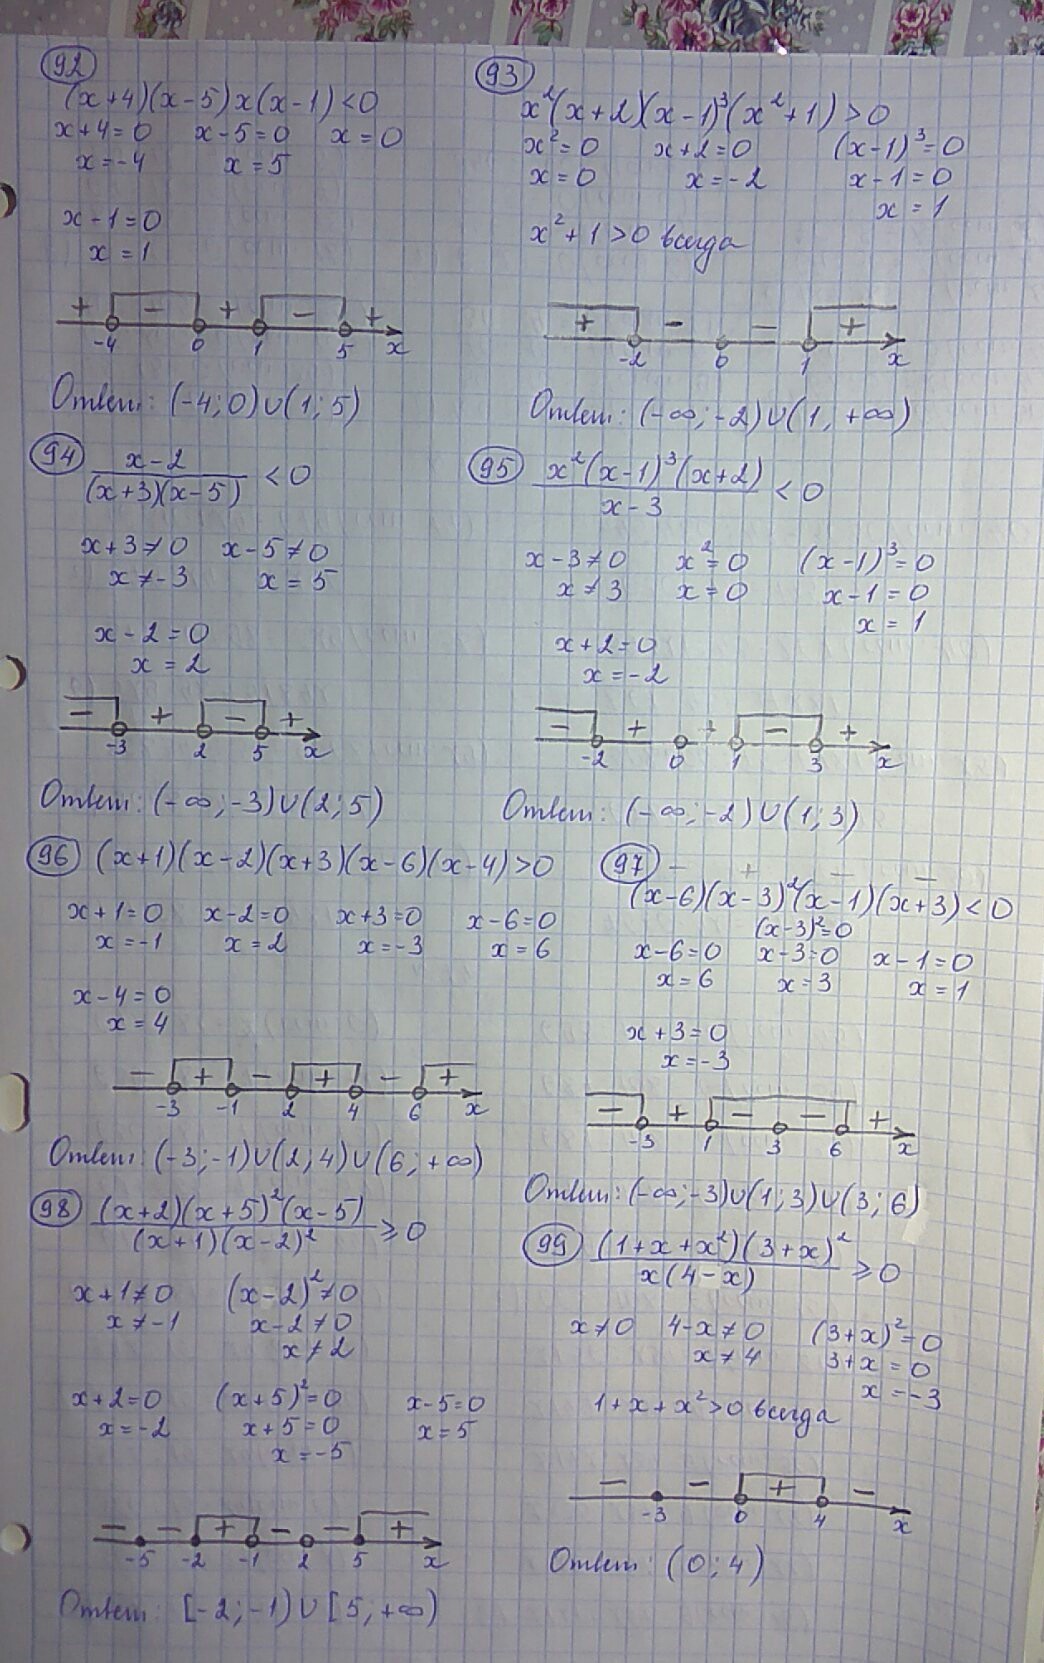 92
(x+4)(x-5)x(x-1)<0
x+4=0 x-5=0 x=0
x=-4 x=5
x-1=0
x=1
+ - + - +
-4 0 1 5 x
Ответ: (-4;0)∪(1;5)
93
x²(x+2)(x-1)³(x²+1)>0
x²=0 x+2=0 (x-1)³=0
x=0 x=-2 x-1=0
x=1
x²+1>0 всегда
+ - - +
-2 0 1 x
Ответ: (-∞;-2)∪(1,+∞)
94
x-2
(x+3)(x-5) <0
x+3≠0 x-5≠0
x≠-3 x=5
x-2=0
x=2
- + - +
-3 2 5 x
Ответ: (-∞;-3)∪(2;5)
95
x²(x-1)³(x+2)
x-3 <0
x-3≠0 x²=0 (x-1)³=0
x≠3 x=0 x-1=0
x=1
x+2=0
x=-2
- + + - +
-2 0 1 3 x
Ответ: (-∞;-2)∪(1;3)
96 (x+1)(x-2)(x+3)(x-6)(x-4)>0
x+1=0 x-2=0 x+3=0 x-6=0
x=-1 x=2 x=-3 x=6
x-4=0
x=4
- + - + - +
-3 -1 2 4 6 x
Ответ: (-3;-1)∪(2;4)∪(6;+∞)
97 - + - -
(x-6)(x-3)²(x-1)(x+3)<0
(x-3)²=0
x-6=0 x-3=0 x-1=0
x=6 x=3 x=1
x+3=0
x=-3
- + - - +
-3 1 3 6 x
Ответ: (-∞;-3)∪(1;3)∪(3;6)
98 (x+2)(x+5)²(x-5)
(x+1)(x-2)² ≥0
x+1≠0 (x-2)²≠0
x≠-1 x-2≠0
x≠2
x+2=0 (x+5)²=0 x-5=0
x=-2 x+5=0 x=5
x=-5
- - + - - +
-5 -2 -1 2 5 x
Ответ: [-2;-1)∪[5;+∞)
99 (1+x+x²)(3+x)²
x(4-x) ≥0
x≠0 4-x≠0 (3+x)²=0
x≠4 3+x=0
x=-3
1+x+x²>0 всегда
- - + -
-3 0 4 x
Ответ: (0;4)